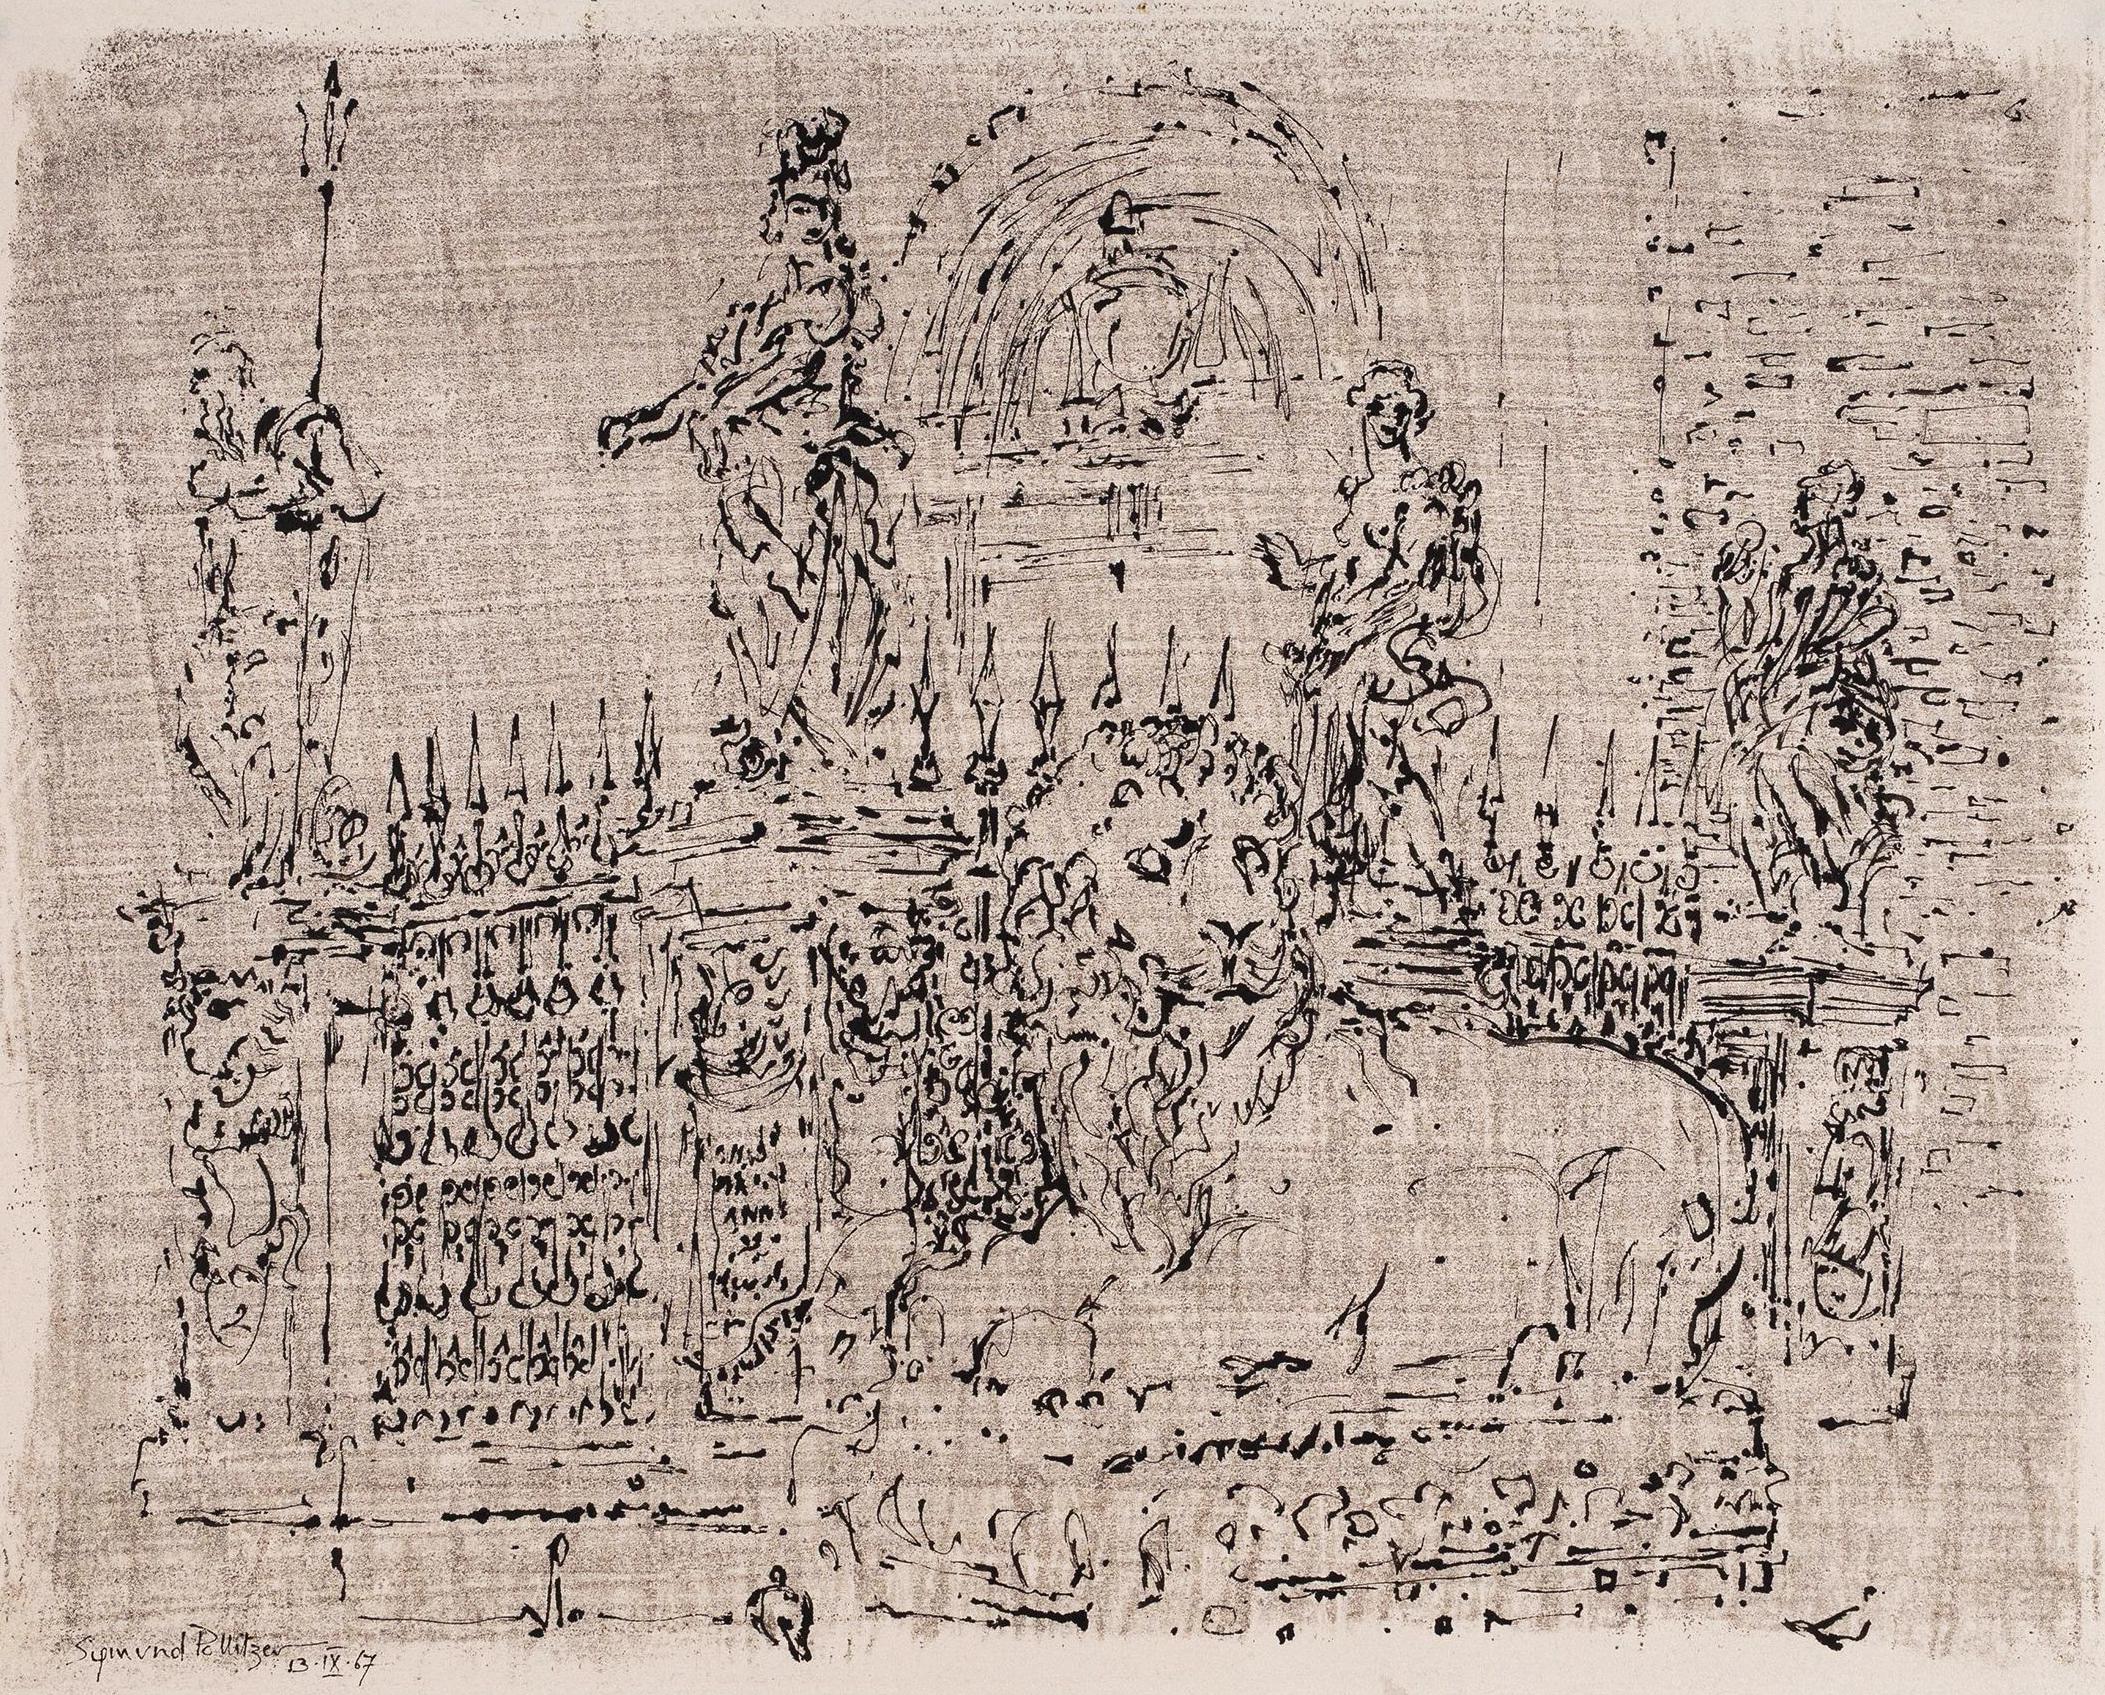 Sigmund Pollitzer
13·IX·67